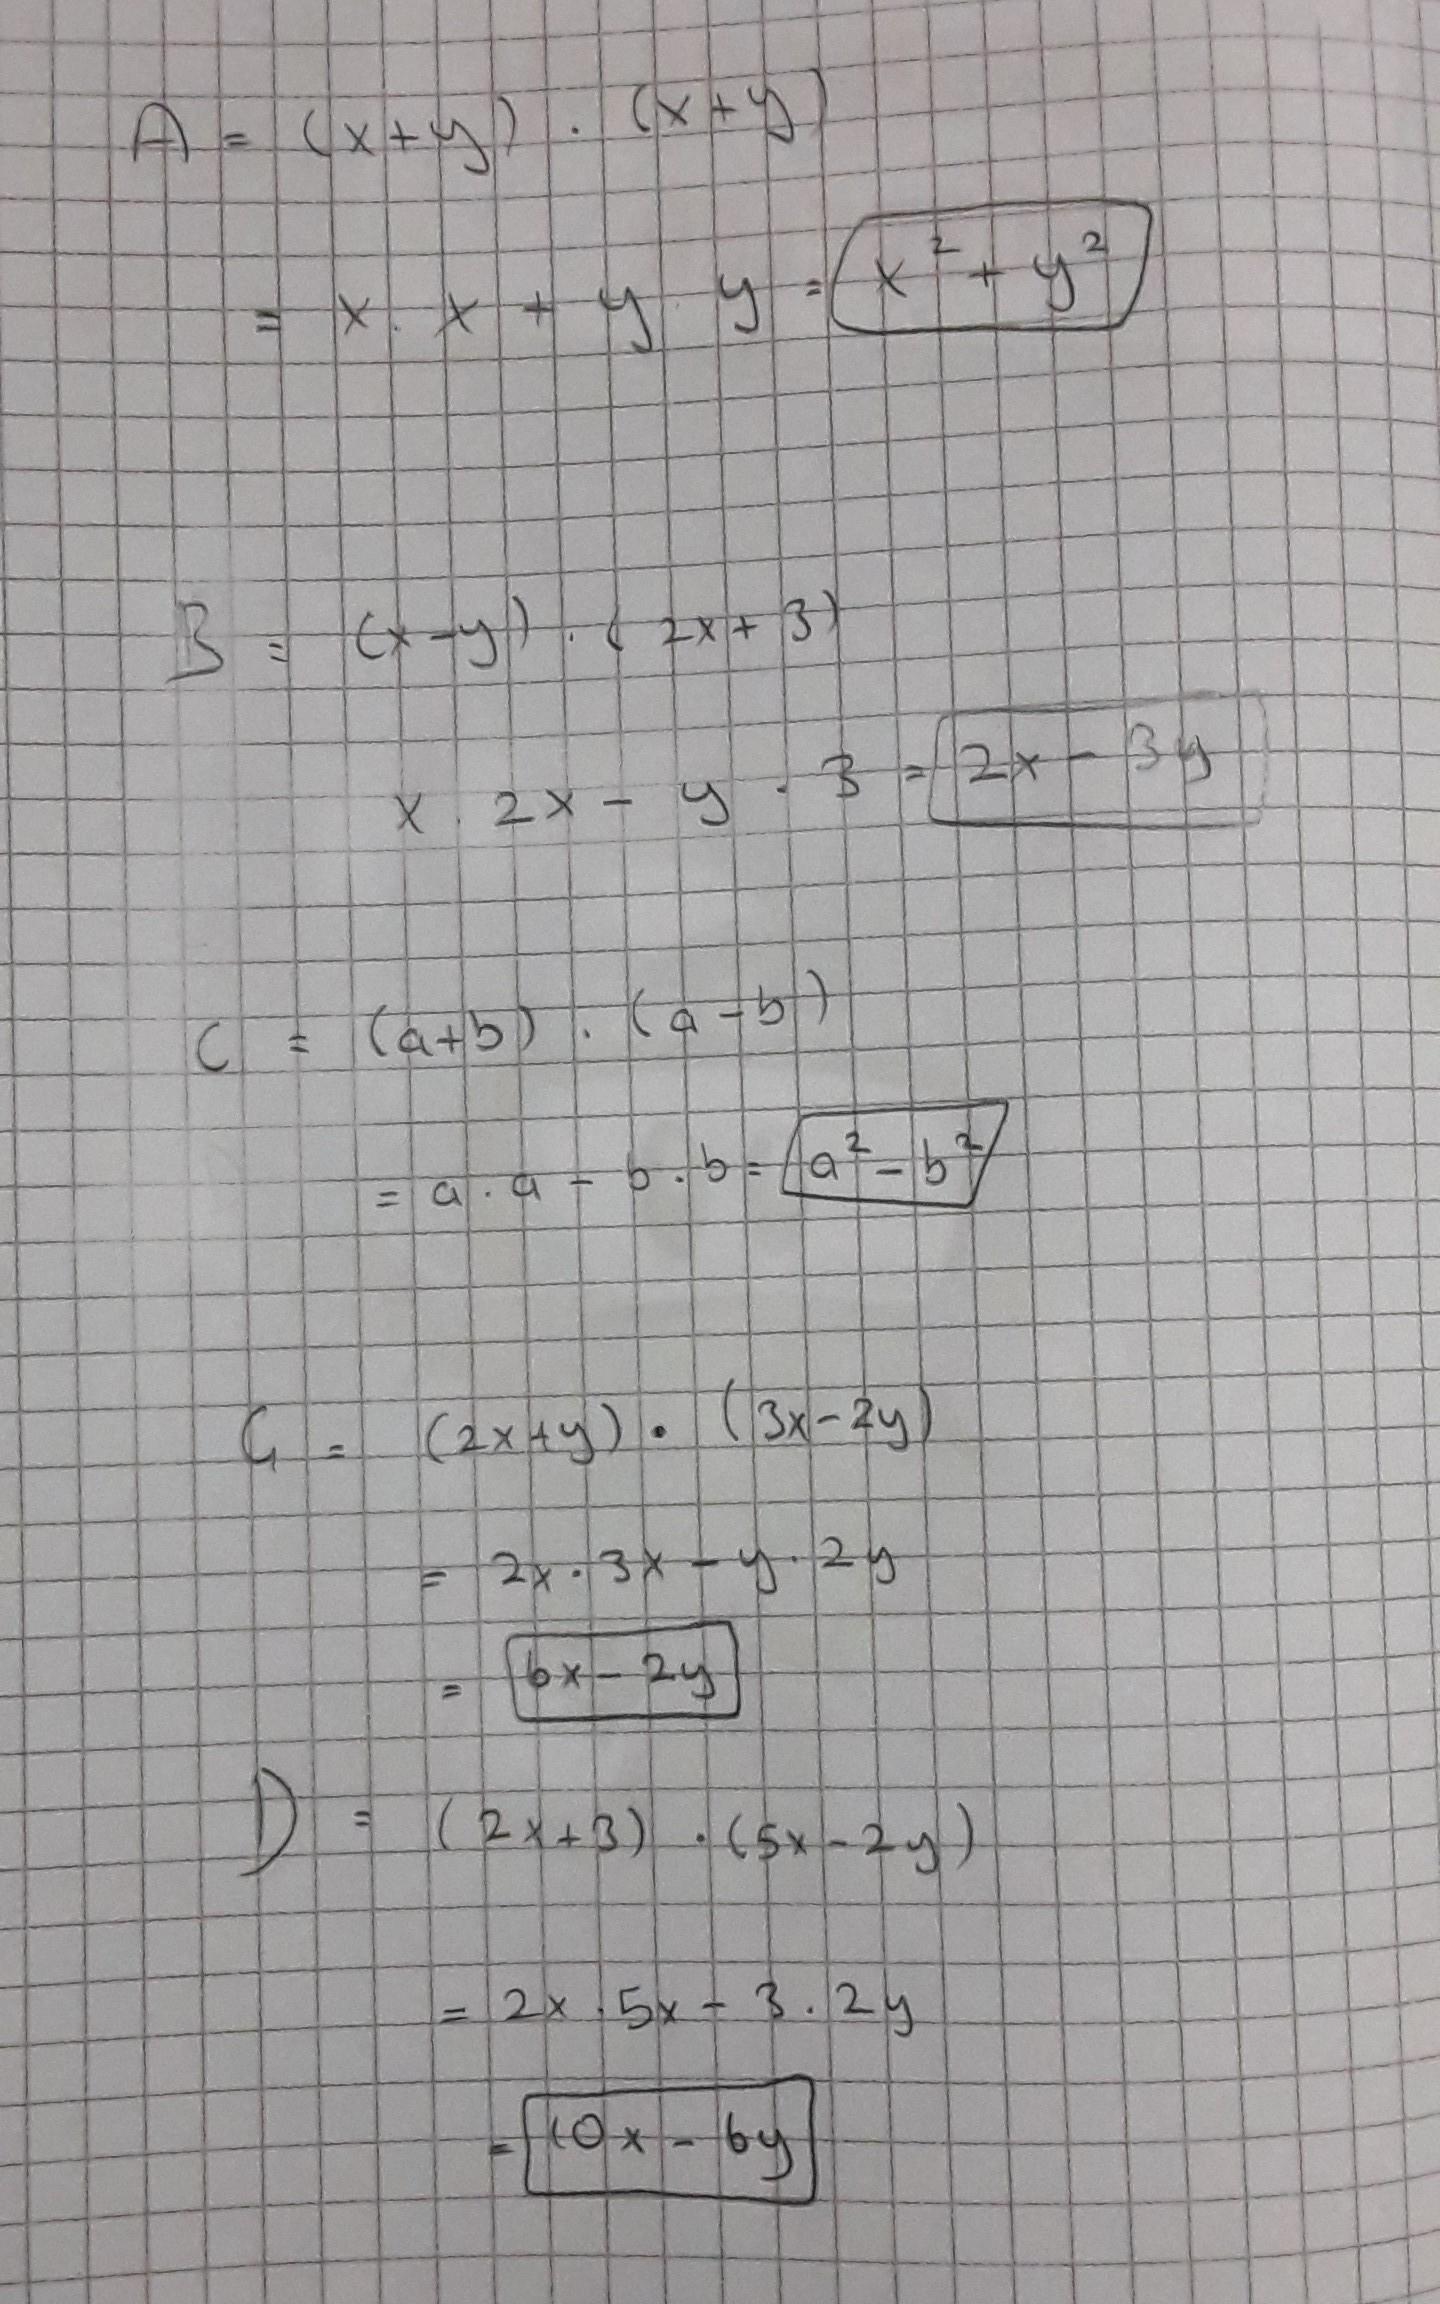 A = (x+y) . (x+y)
= x . x + y . y = x² + y²
B = (x-y) . (2x+3)
x . 2x - y . 3 = 2x - 3y
C = (a+b) . (a-b)
= a . a - b . b = a² - b²
Ç = (2x+y) . (3x-2y)
= 2x . 3x - y . 2y
= 6x - 2y
D = (2x+3) . (5x-2y)
= 2x . 5x - 3 . 2y
= 10x - 6y